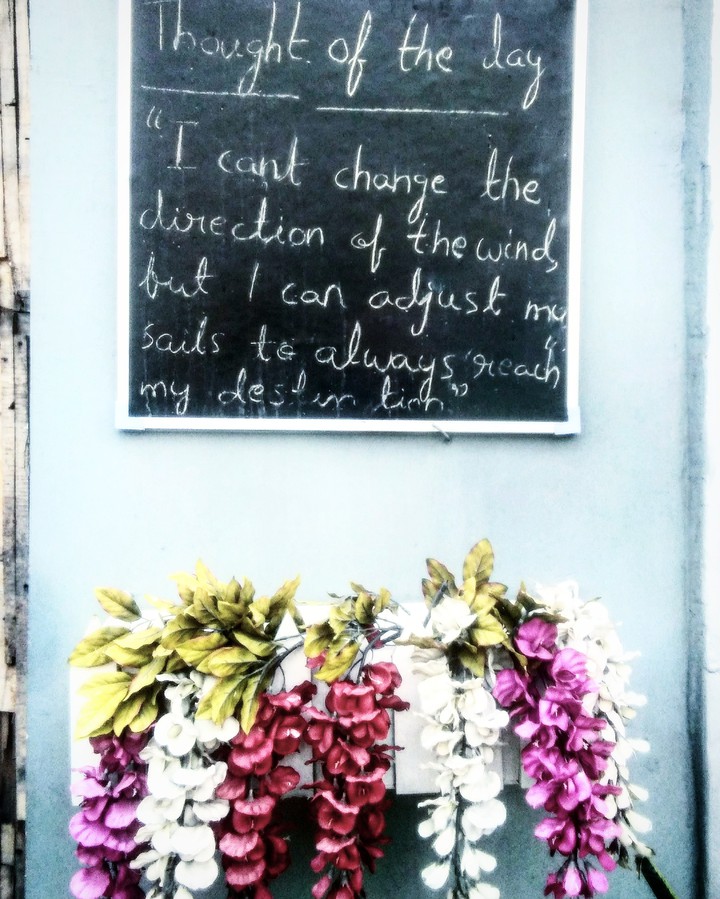 Thought of the day
"I cant change the
direction of the wind,
but I can adjust my
sails to always reach
my destin tion"